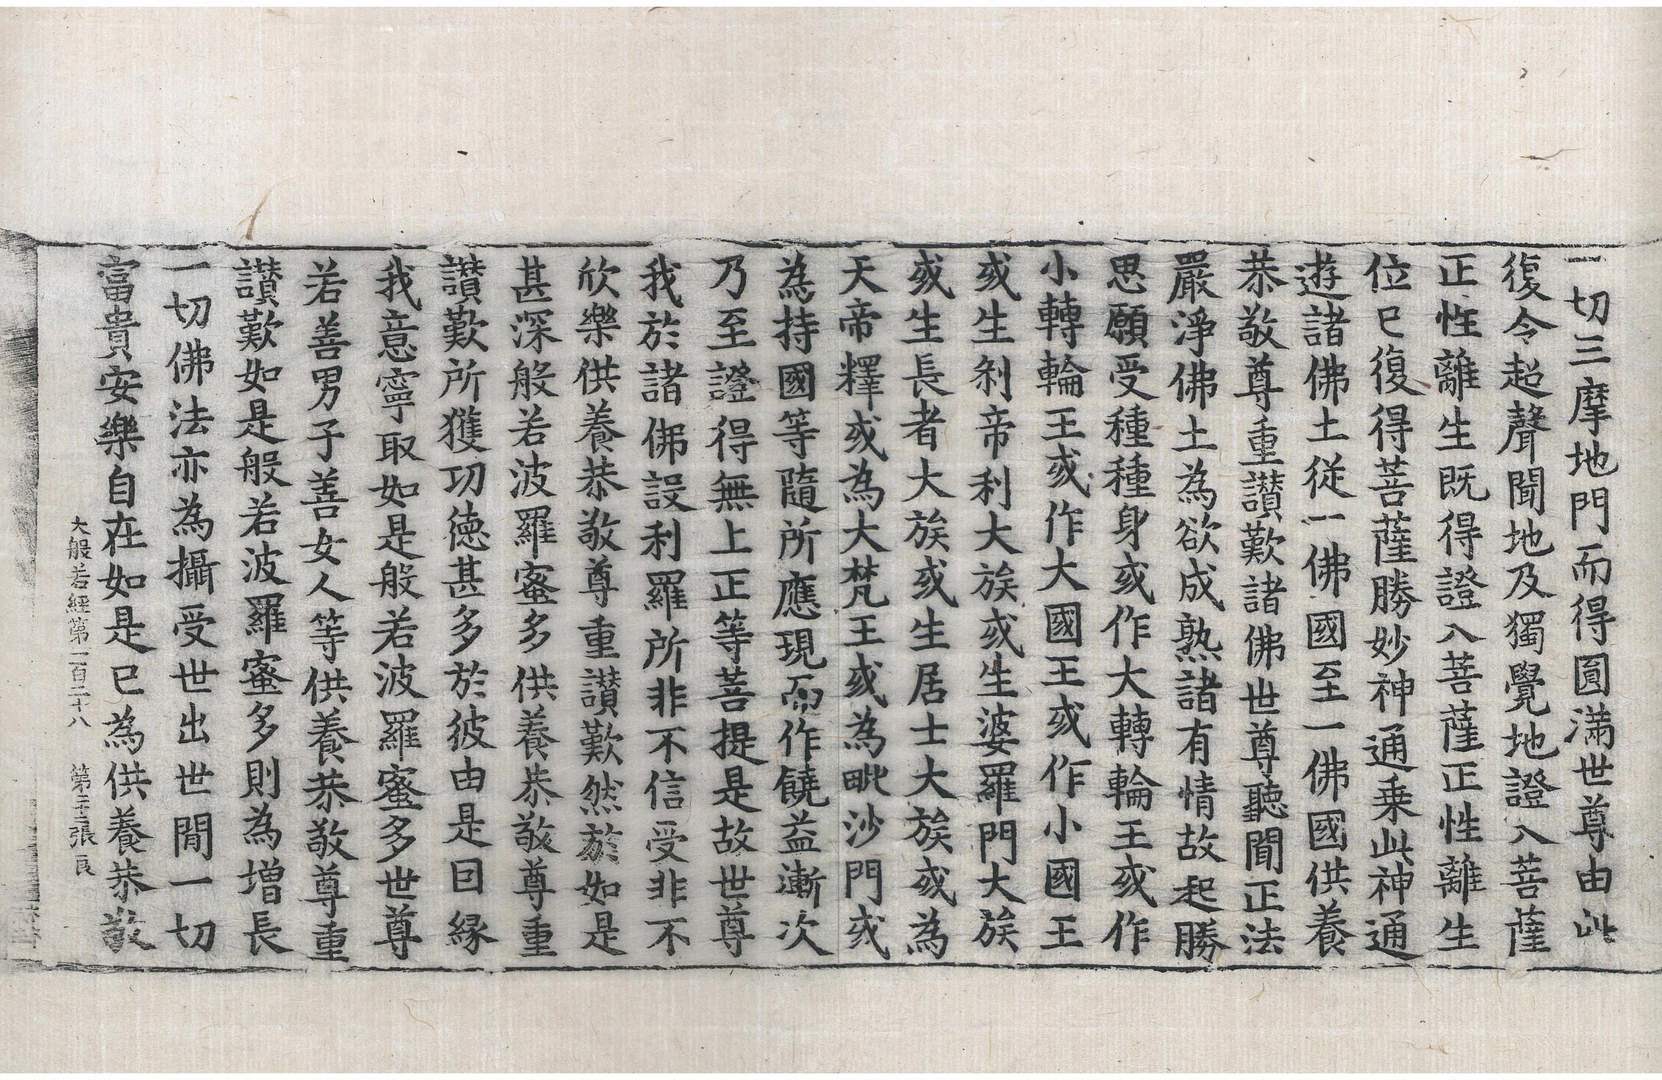 一切三摩地門而得圓滿世尊由此
復令超聲聞地及獨覺地證入菩薩
正性離生既得證入菩薩正性離生
位已復得菩薩勝妙神通乗此神通
遊諸佛土従一佛國至一佛國供養
恭敬尊重讃歎諸佛世尊聽聞正法
嚴淨佛土為欲成熟諸有情故起勝
思願受種種身或作大轉輪王或作
小轉輪王或作大國王或作小國王
或生剎帝利大族或生婆羅門大族
或生長者大族或生居士大族或為
天帝釋或為大梵王或為毗沙門或
為持國等隨所應現而作饒益漸次
乃至證得無上正等菩提是故世尊
我於諸佛設利羅所非不信受非不
欣樂供養恭敬尊重讃歎然於如是
甚深般若波羅蜜多供養恭敬尊重
讃歎所獲功德甚多於彼由是因緣
我意寧取如是般若波羅蜜多世尊
若善男子善女人等供養恭敬尊重
讃歎如是般若波羅蜜多則為增長
一切佛法亦為攝受世出世間一切
富貴安樂自在如是已為供養恭敬
大般若經第一百二十八 第三張 良